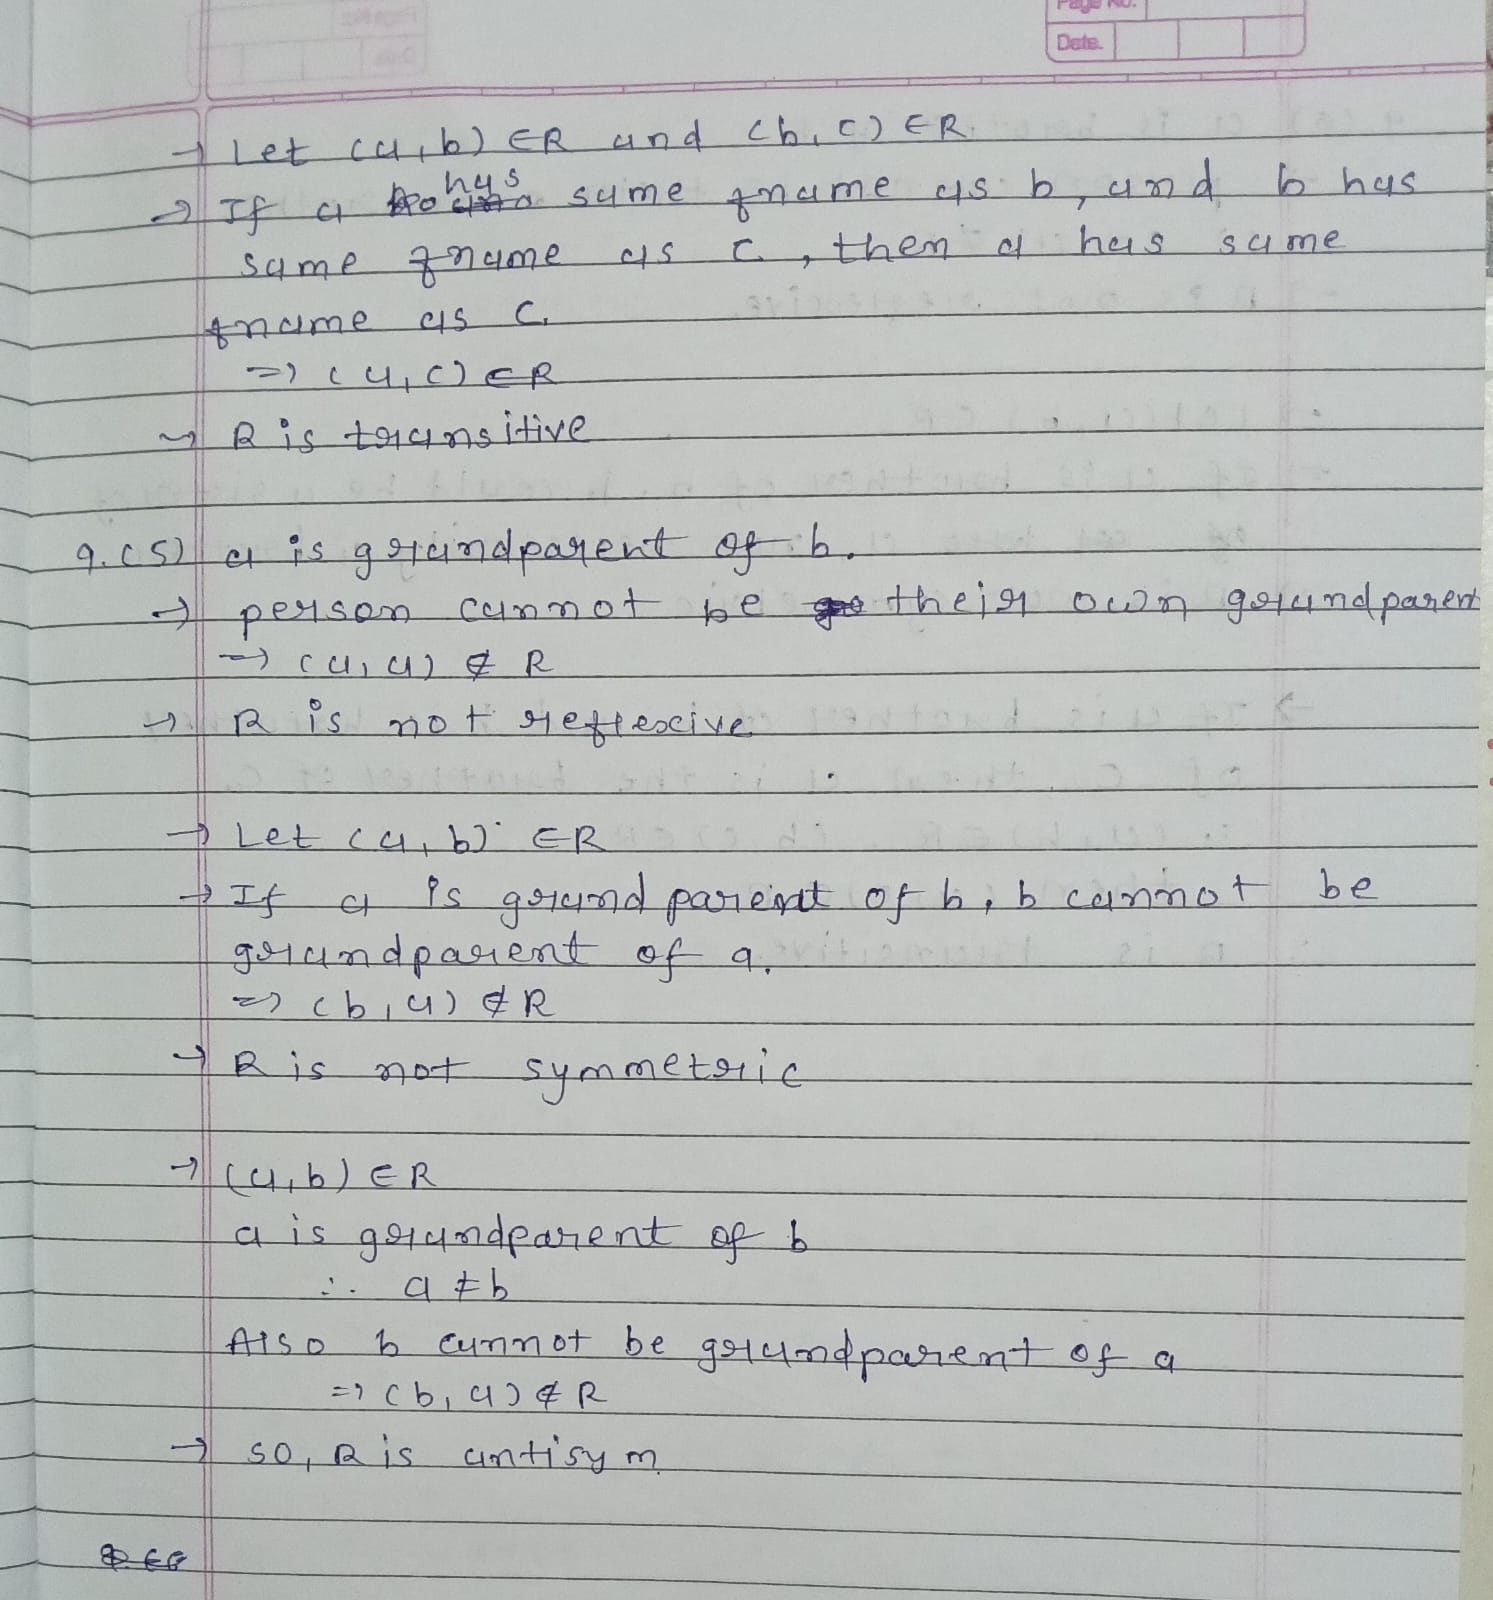 Page No.
Date.
→ Let (a, b) ∈ R and (b, c) ∈ R.
→ If a has same fname as b, and b has
same fname as c, then a has same
fname as c.
=> (a, c) ∈ R
→ R is transitive
9.(5) a is grandparent of b.
→ person cannot be their own grandparent
=> (a, a) ∉ R
→ R is not reflexive
→ Let (a, b) ∈ R
→ If a is grandparent of b, b cannot be
grandparent of a.
=> (b, a) ∉ R
→ R is not symmetric
→ (a, b) ∈ R
a is grandparent of b
∴ a ≠ b
Also b cannot be grandparent of a
=> (b, a) ∉ R
→ so, R is antisym